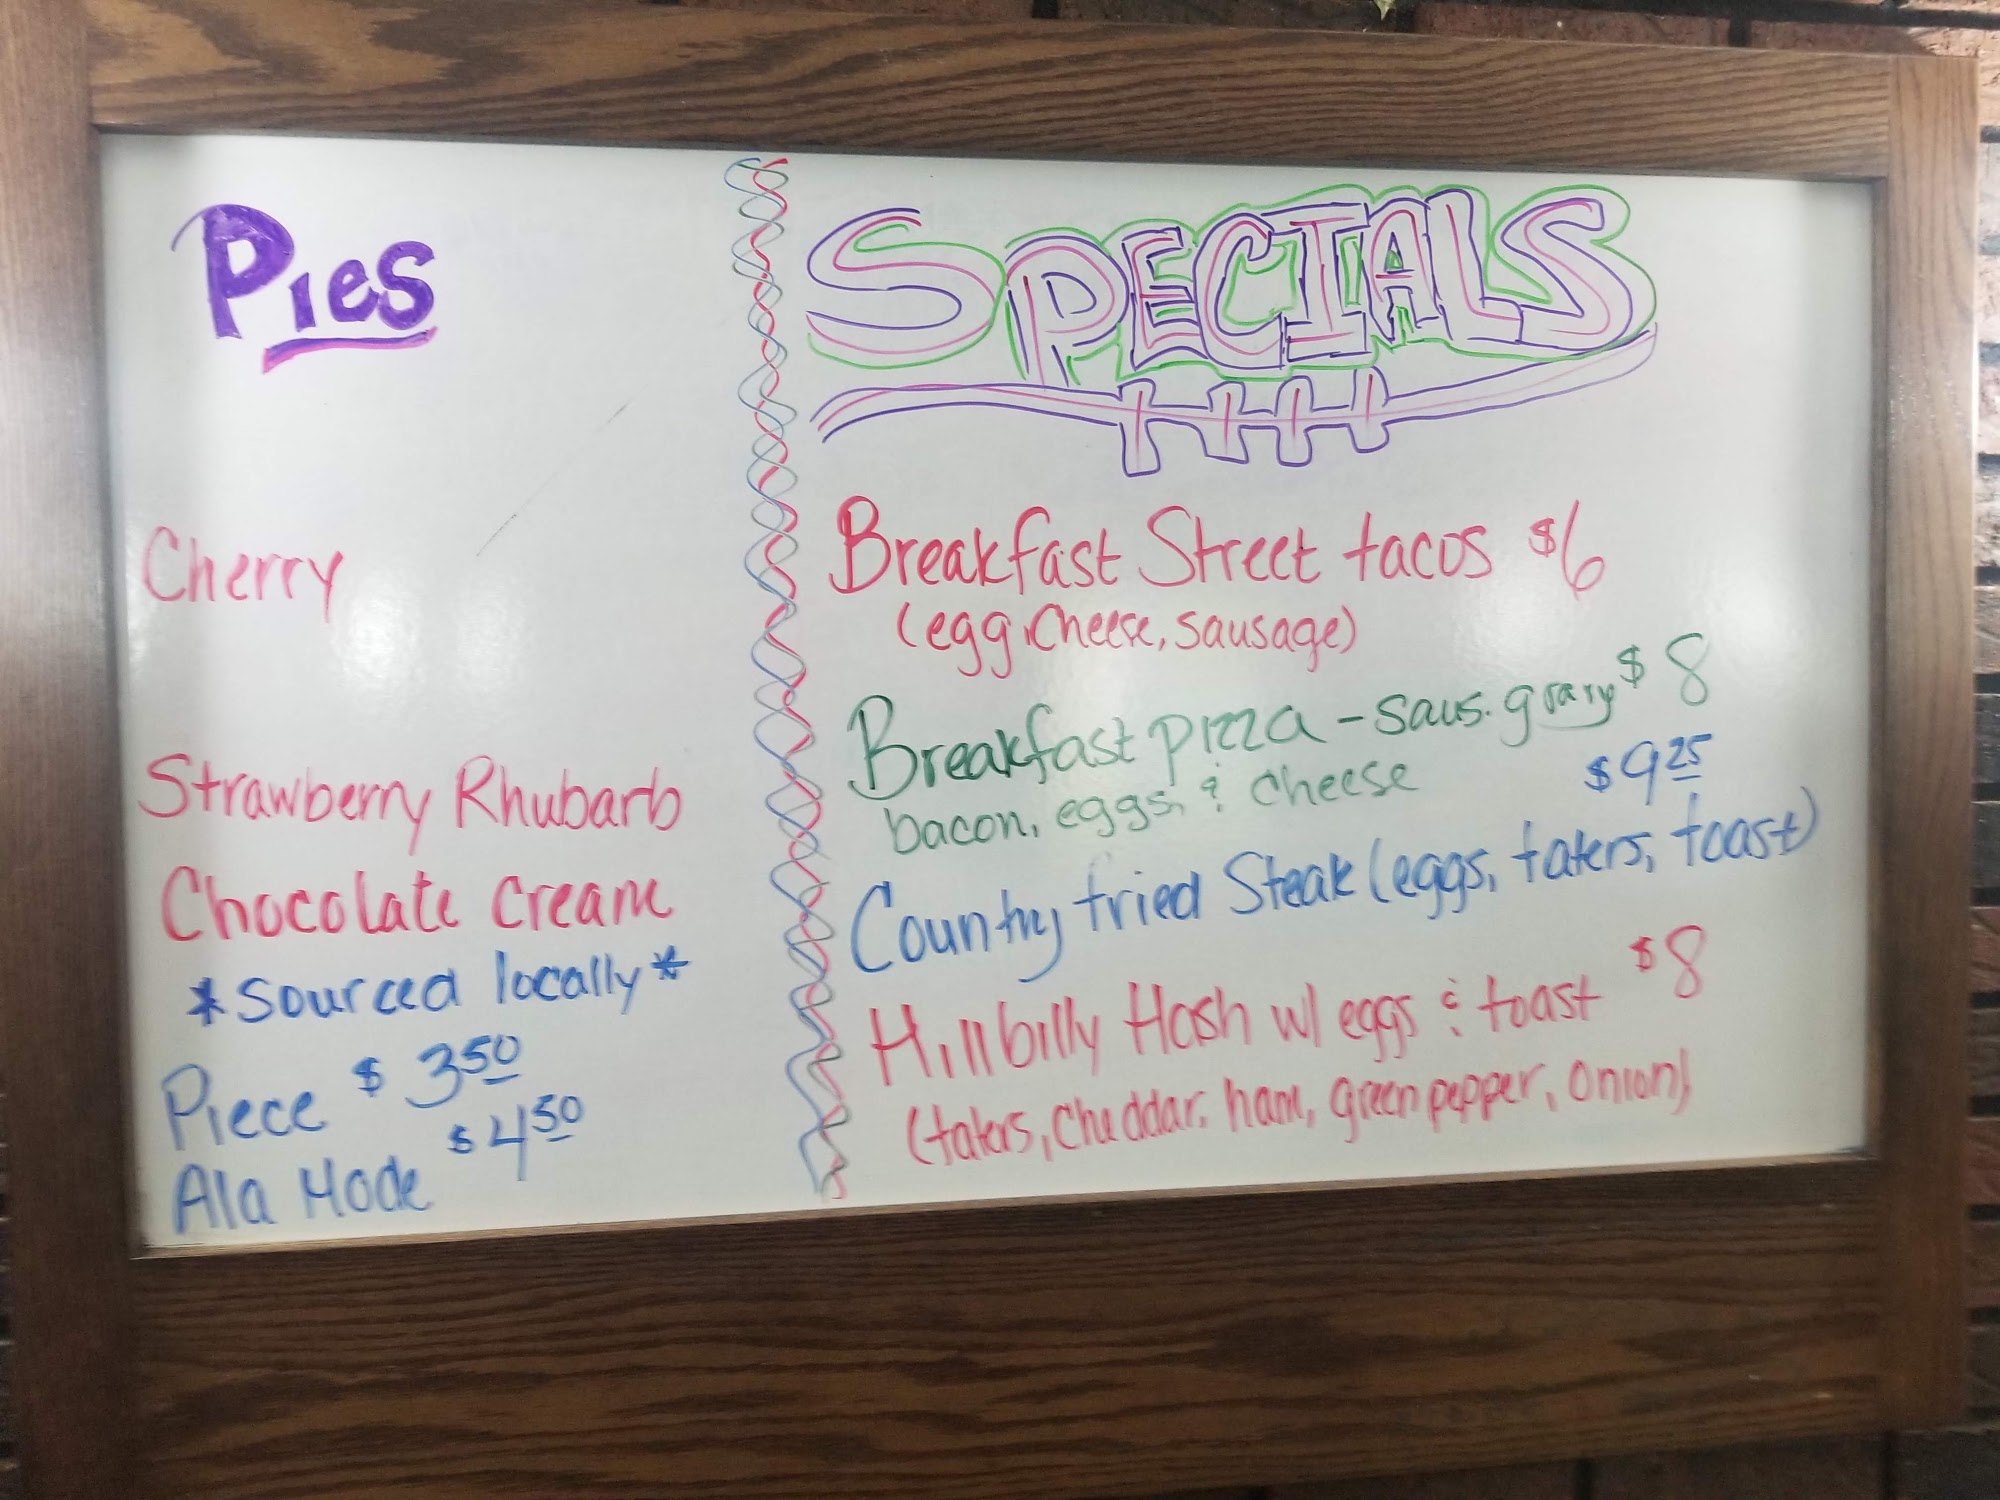 Pies
Cherry
Strawberry Rhubarb
Chocolate Cream
*Sourced locally*
Piece $3.50
Ala Mode $4.50
SPECIALS
Breakfast Street tacos $6
(egg, Cheese, sausage)
Breakfast pizza - saus. gravy $8
bacon, eggs, & cheese
$9.25
Country fried Steak (eggs, taters, toast)
Hillbilly Hash w/ eggs & toast $8
(taters, Cheddar, ham, green pepper, onion)